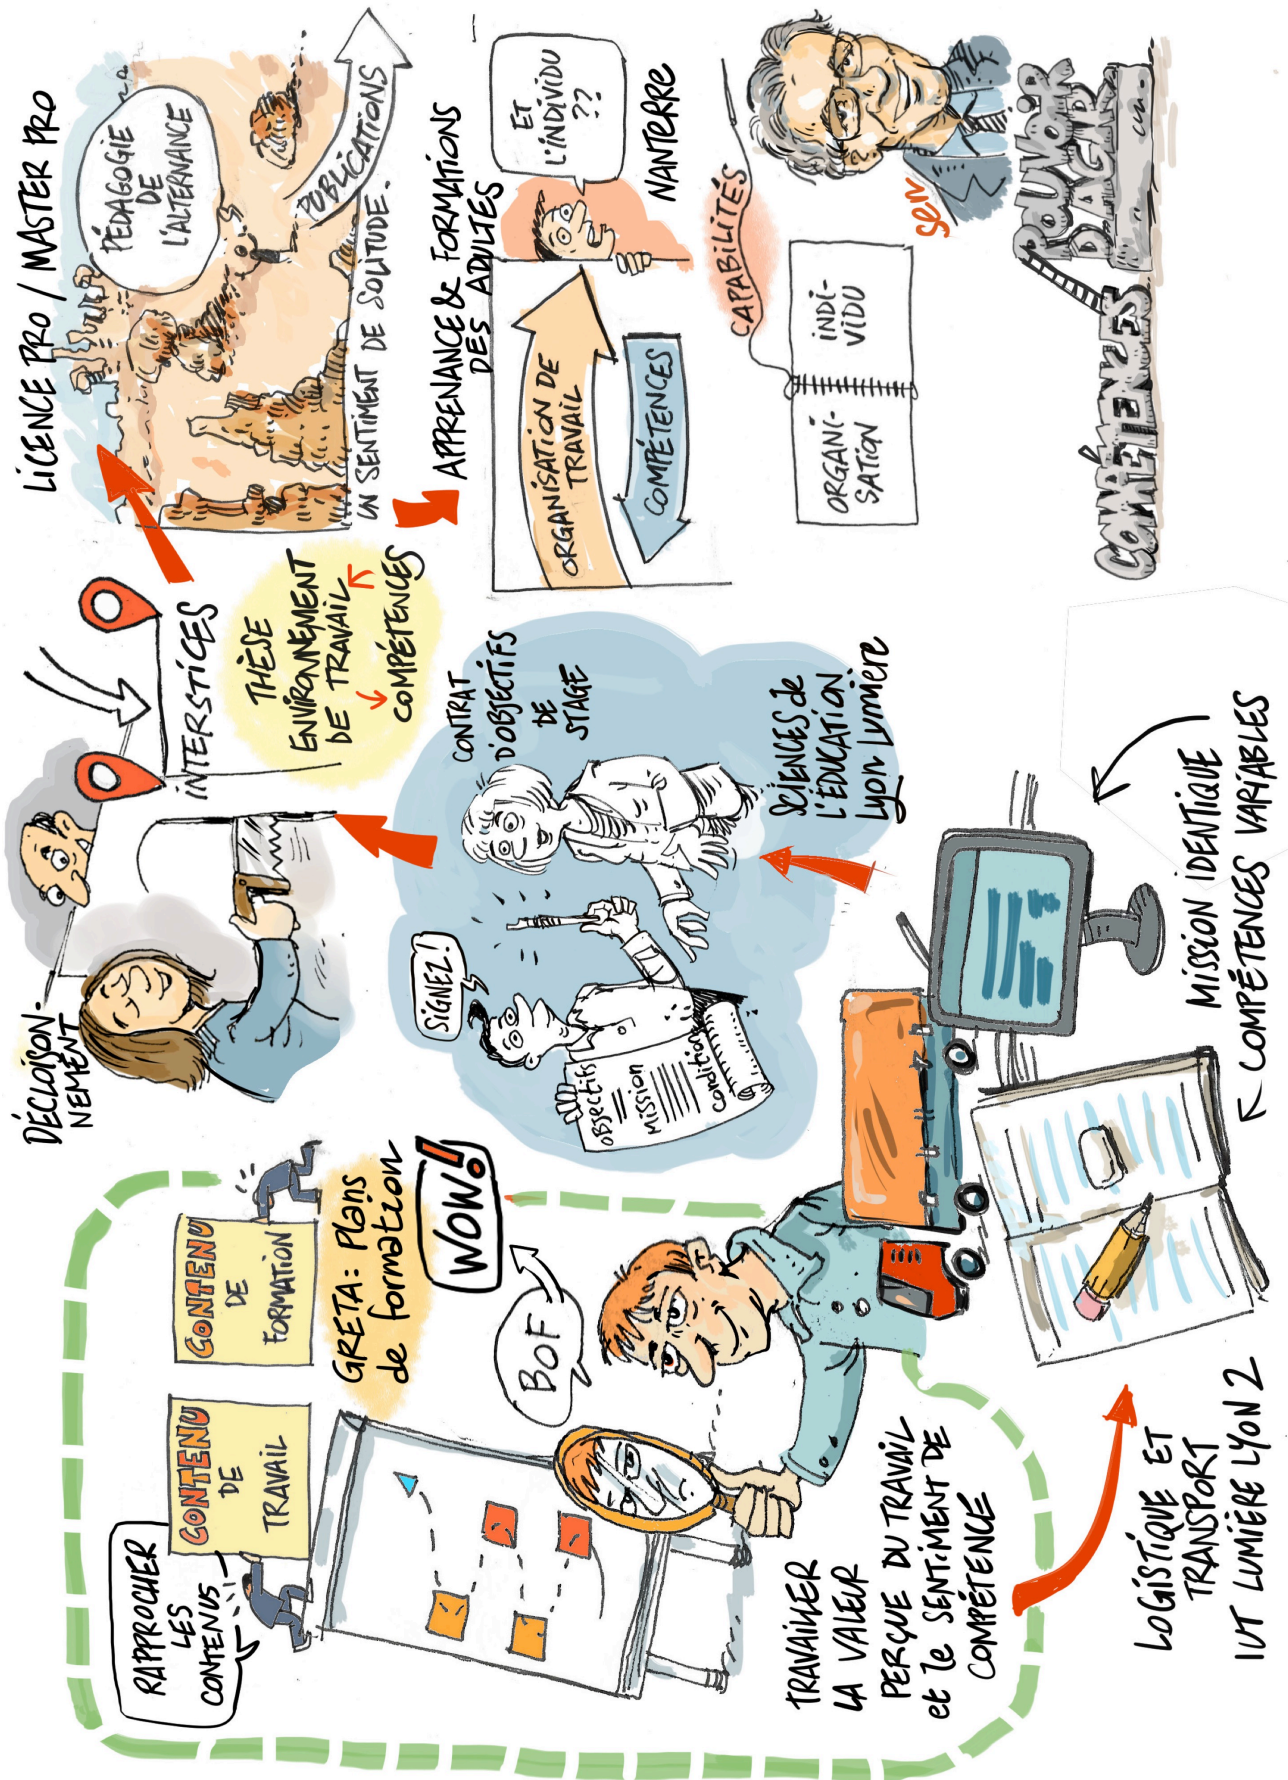 RAPPROCHER
LES
CONTENUS
CONTENU
DE
TRAVAIL
CONTENU
DE
FORMATION
GRETA: Plans
de formation
BOF
WOW!
TRAVAILLER
LA VALEUR
PERÇUE DU TRAVAIL
et le SENTIMENT DE
COMPÉTENCE
LOGISTIQUE ET
TRANSPORT
IUT LUMIÈRE LYON 2
MISSION IDENTIQUE
COMPÉTENCES VARIABLES
SCIENCES de
L'ÉDUCATION
Lyon Lumière
SIGNEZ!
OBJECTIFS
MISSION
Conditions
CONTRAT
D'OBJECTIFS
DE
STAGE
DÉCLOISON-
NEMENT
INTERSTICES
THÈSE
ENVIRONNEMENT
DE TRAVAIL
COMPÉTENCES
LICENCE PRO / MASTER PRO
PÉDAGOGIE
DE
L'ALTERNANCE
PUBLICATIONS
UN SENTIMENT DE SOLITUDE.
APPRENANCE & FORMATIONS
DES ADULTES
ORGANISATION DE
TRAVAIL
COMPÉTENCES
ET
L'INDIVIDU
??
NANTERRE
CAPABILITÉS
ORGANI-
SATION
INDI-
VIDU
Sen
COMPÉTENCES
POUVOIR
D'AGIR